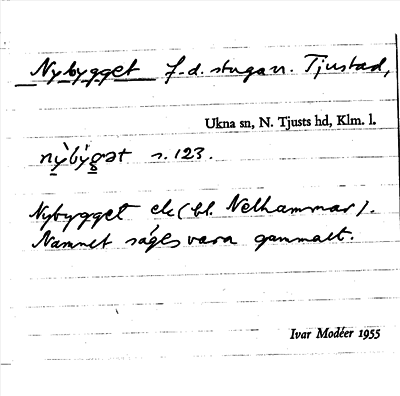 Nybygget f.d. stugan. Tjustad,
Ukna sn, N. Tjusts hd, Klm. l.
nỳbýgət s. 123.
Nybygget ek (bl. Nelhammar).
Namnet säges vara gammalt.
Ivar Modéer 1955